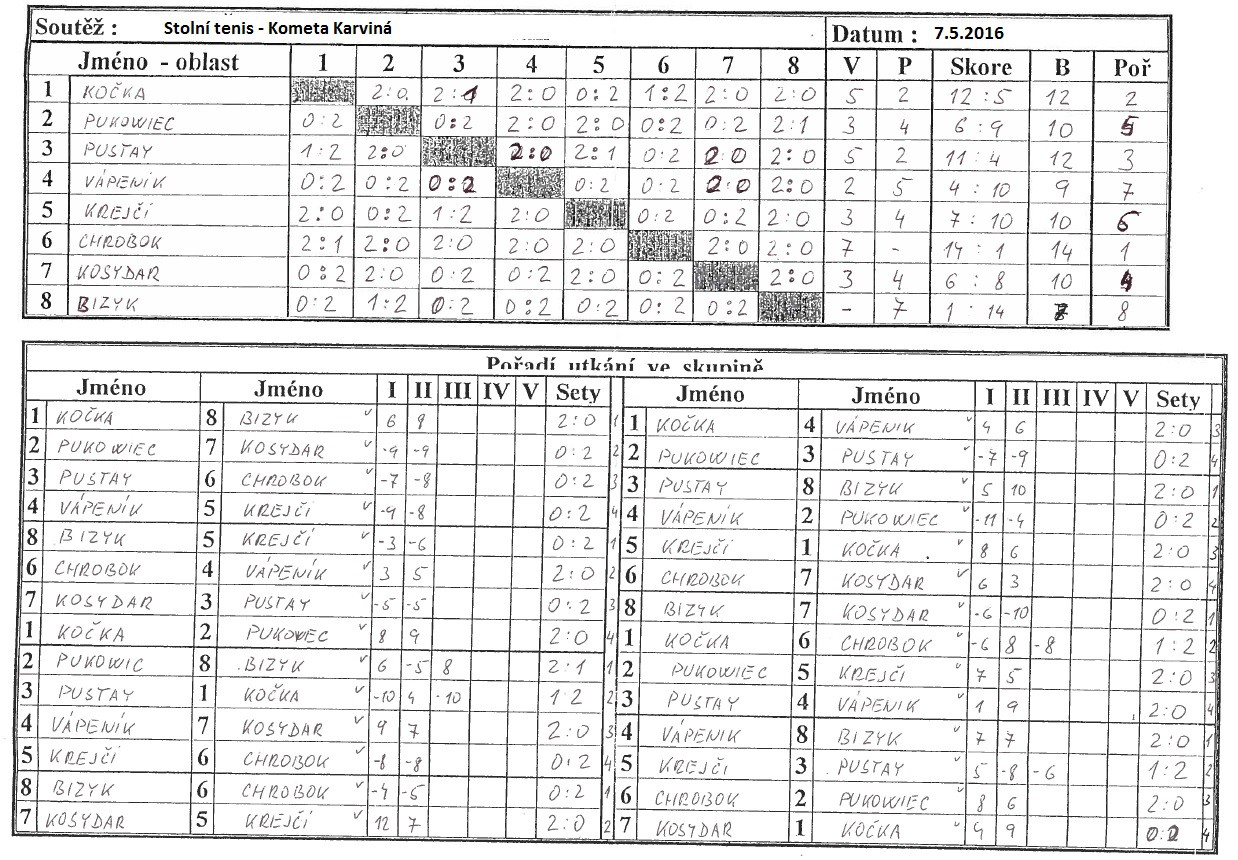 Soutěž : Stolní tenis - Kometa Karviná Datum : 7.5.2016
Jméno - oblast 1 2 3 4 5 6 7 8 V P Skore B Poř
1 KOČKA 2:0 2:1 2:0 0:2 1:2 2:0 2:0 5 2 12:5 12 2
2 PUKOWIEC 0:2 0:2 2:0 2:0 0:2 0:2 2:1 3 4 6:9 10 5
3 PUSTAY 1:2 2:0 2:0 2:1 0:2 2:0 2:0 5 2 11:4 12 3
4 VÁPENÍK 0:2 0:2 0:2 0:2 0:2 2:0 2:0 2 5 4:10 9 7
5 KREJČÍ 2:0 0:2 1:2 2:0 0:2 0:2 2:0 3 4 7:10 10 6
6 CHROBOK 2:1 2:0 2:0 2:0 2:0 2:0 2:0 7 - 14:1 14 1
7 KOSYDAR 0:2 2:0 0:2 0:2 2:0 0:2 2:0 3 4 6:8 10 4
8 BIZYK 0:2 1:2 0:2 0:2 0:2 0:2 0:2 - 7 1:14 7 8
Pořadí utkání ve skupině
Jméno Jméno I II III IV V Sety Jméno Jméno I II III IV V Sety
1 KOČKA 8 BIZYK v 6 9 2:0 1 1 KOČKA 4 VÁPENÍK v 4 6 2:0 3
2 PUKOWIEC 7 KOSYDAR v -9 -9 0:2 2 2 PUKOWIEC 3 PUSTAY v -7 -9 0:2 4
3 PUSTAY 6 CHROBOK v -7 -8 0:2 3 3 PUSTAY 8 BIZYK v 5 10 2:0 1
4 VÁPENÍK 5 KREJČÍ v -9 -8 0:2 4 4 VÁPENÍK 2 PUKOWIEC v -11 -4 0:2 2
8 BIZYK 5 KREJČÍ v -3 -6 0:2 1 5 KREJČÍ 1 KOČKA v 8 6 2:0 3
6 CHROBOK 4 VÁPENÍK v 3 5 2:0 2 6 CHROBOK 7 KOSYDAR v 6 3 2:0 4
7 KOSYDAR 3 PUSTAY v -5 -5 0:2 3 8 BIZYK 7 KOSYDAR v -6 -10 0:2 1
1 KOČKA 2 PUKOWEC v 8 9 2:0 4 1 KOČKA 6 CHROBOK v -6 8 -8 1:2 2
2 PUKOWIC 8 BIZYK v 6 -5 8 2:1 1 2 PUKOWIEC 5 KREJČÍ v 7 5 2:0 3
3 PUSTAY 1 KOČKA v -10 4 -10 1 2 2 3 PUSTAY 4 VÁPENÍK v 1 9 2:0 4
4 VÁPENÍK 7 KOSYDAR v 9 7 2:0 3 4 VÁPENÍK 8 BIZYK v 7 7 2:0 1
5 KREJČÍ 6 CHROBOK v -8 -8 0:2 4 5 KREJČÍ 3 PUSTAY v 5 -8 -6 1:2 2
8 BIZYK 6 CHROBOK v -4 -5 0:2 1 6 CHROBOK 2 PUKOWIEC v 8 6 2:0 3
7 KOSYDAR 5 KREJČÍ v 12 7 2:0 2 7 KOSYDAR 1 KOČKA v 4 9 0:2 4